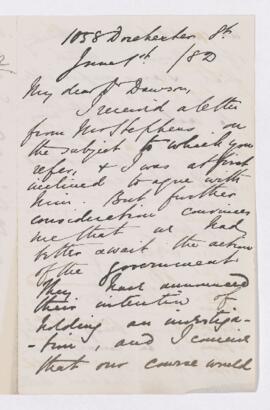 1058 Dorchester St
June 1st /82
My dear Dr Dawson,
I received a letter
from Mr Stephens on
the subject to which you
refer, & I was at first
inclined to agree with
him. But further
consideration convinces
me that we had
better await the action
of the government.
They have announced
their intention of
holding an investiga-
-tion, and I conceive
that our course would